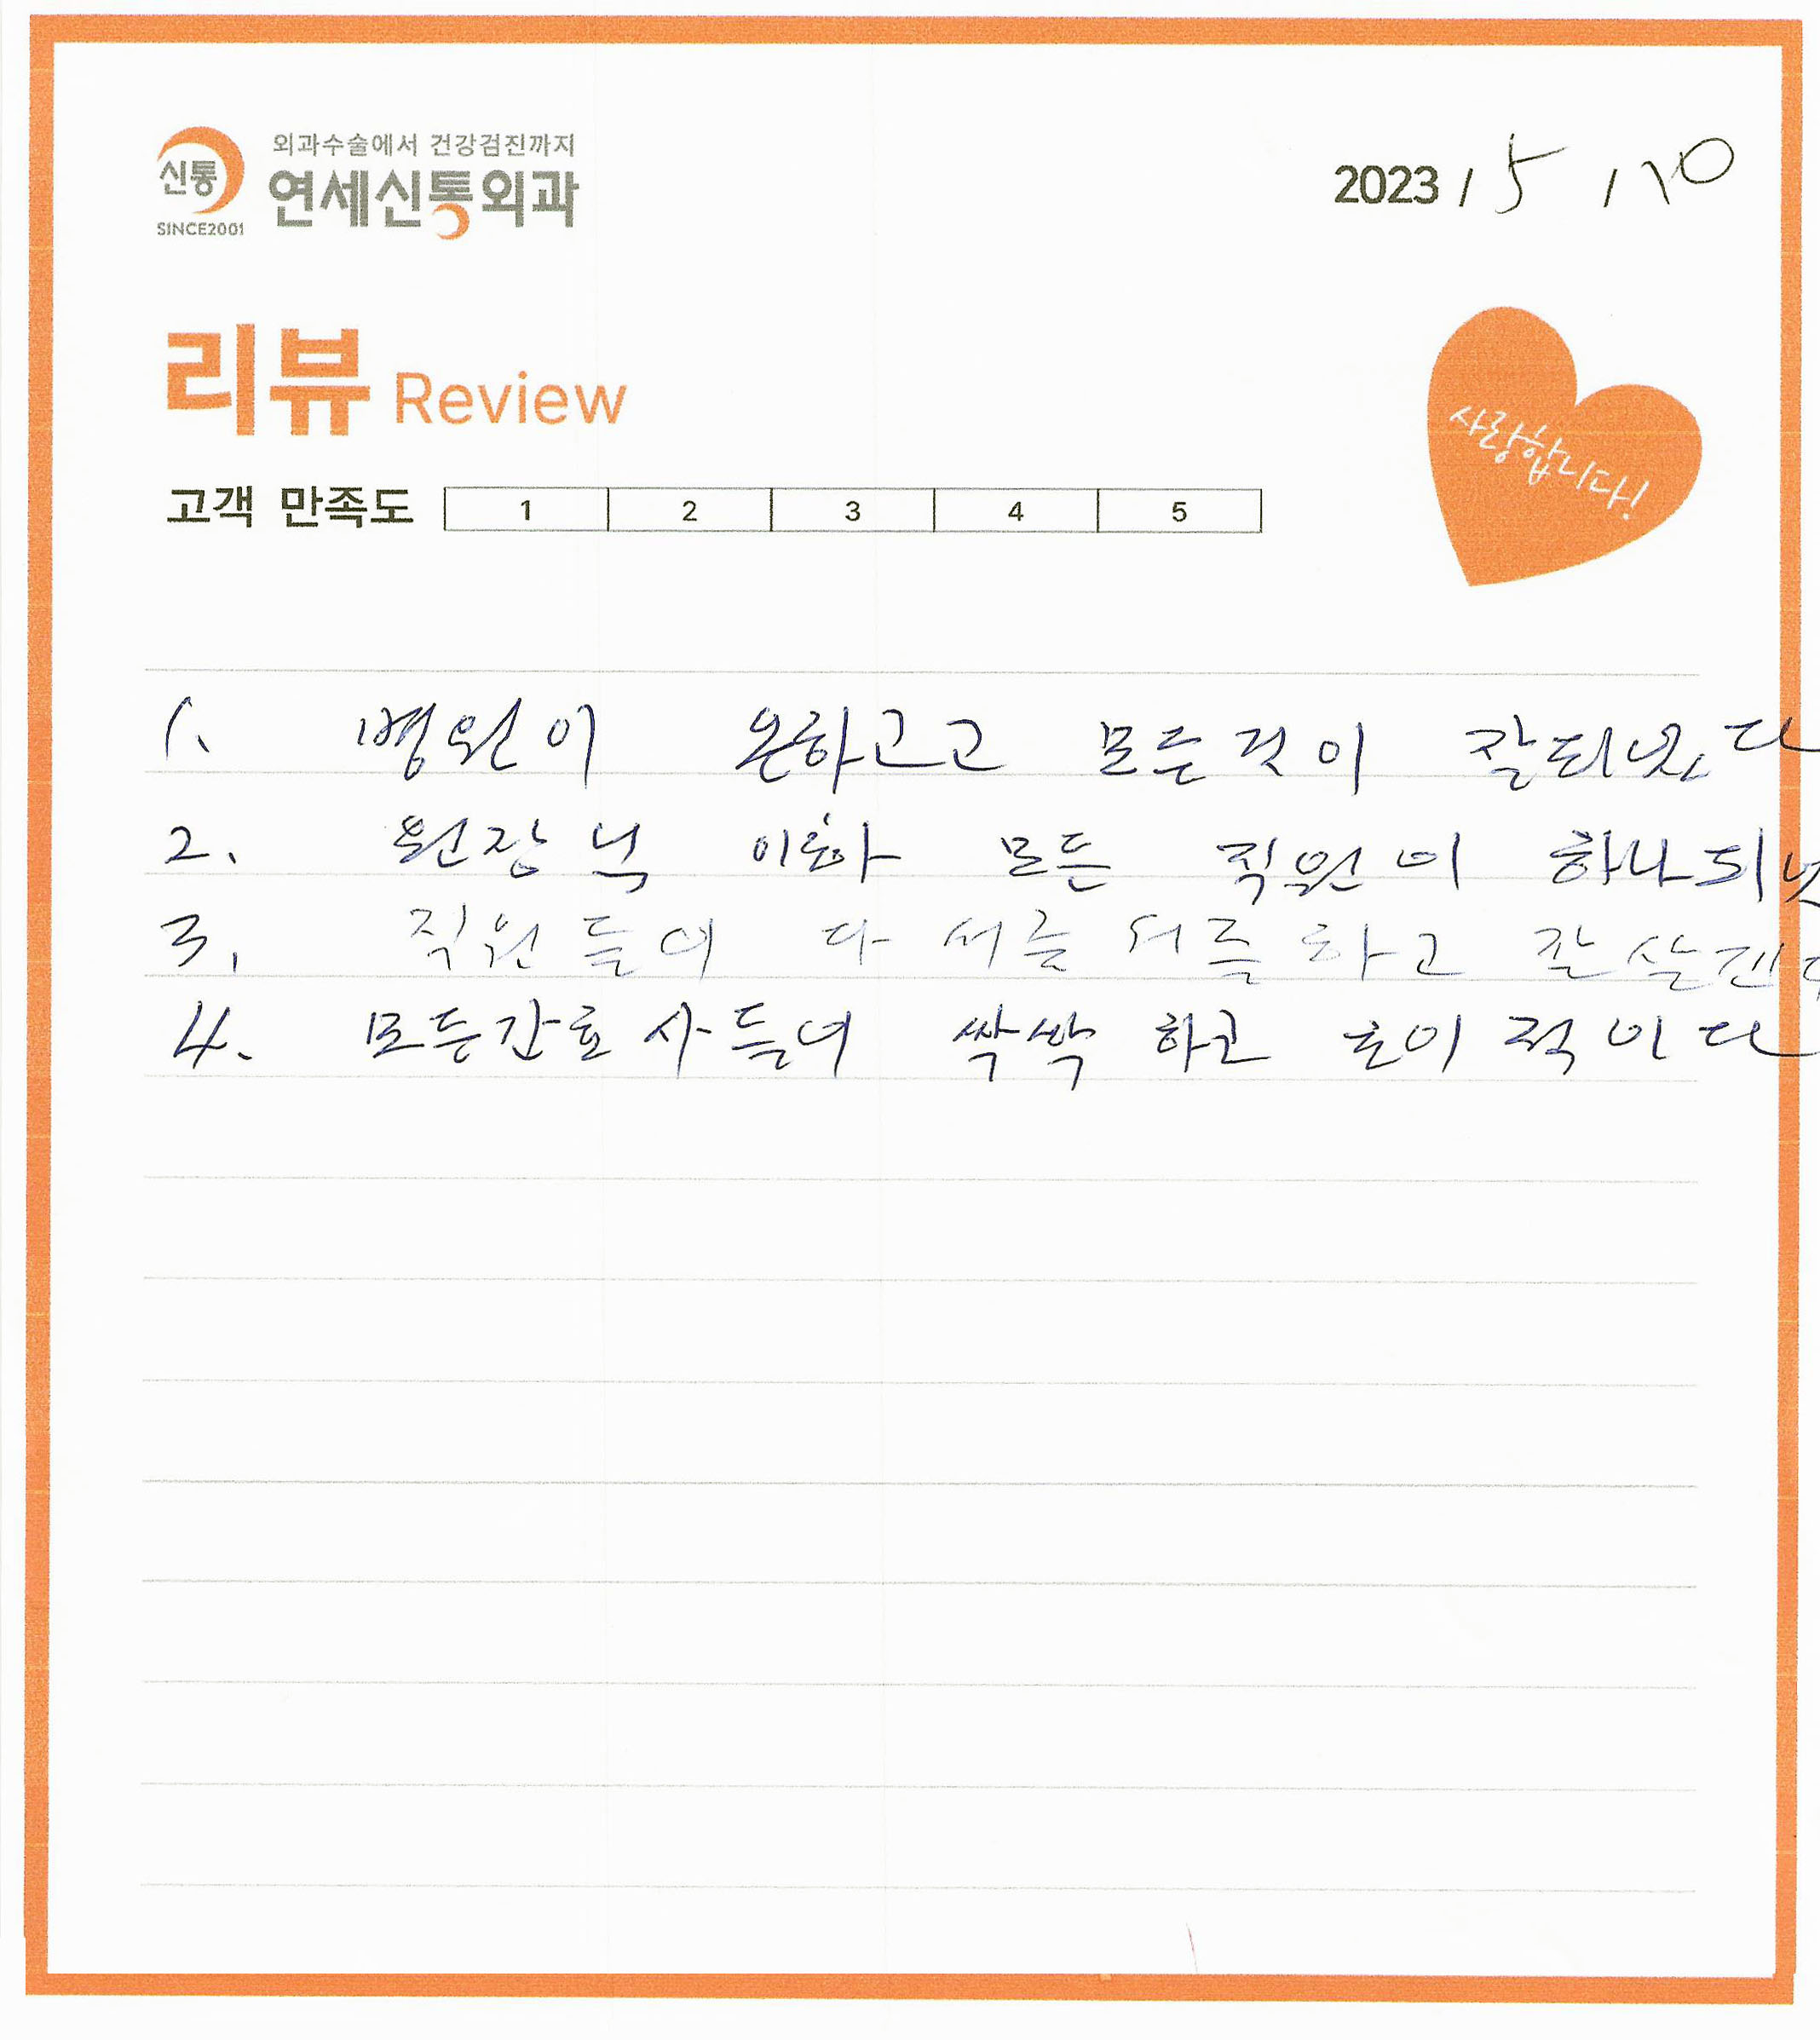 신통
SINCE2001
외과수술에서 건강검진까지
연세신통외과
2023 / 5 / 10
리뷰 Review
사랑합니다!
고객 만족도 1 2 3 4 5
1. 병원이 온하고고 모든것이 잘되있다
2. 원장님 이하 모든 직원이 하나되
3. 직원들이 다 서글서글하고 잘
4. 모든간호사들이 싹싹하고